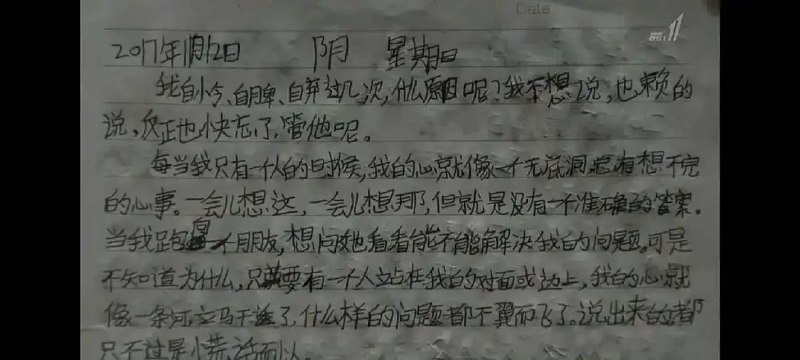 Date
2017年1月12日 阴 星期日
我自小今、自卑、自弃过几次,什么原因呢?我不想说,也赖的
说,反正也快忘了,管他呢。
每当我只有一个人的时候,我的心就像一个无底洞总有想不完
的心事。一会儿想这,一会儿想那,但就是没有一个准确的答案。
当我跑 个朋友,想问她看看能不能解决我的问题。可是
不知道为什么,只要有一个人站在我的对面或边上,我的心就
像一条河立马干涸了,什么样的问题都不翼而飞了。说出来的都
只不过是小荒话而以。